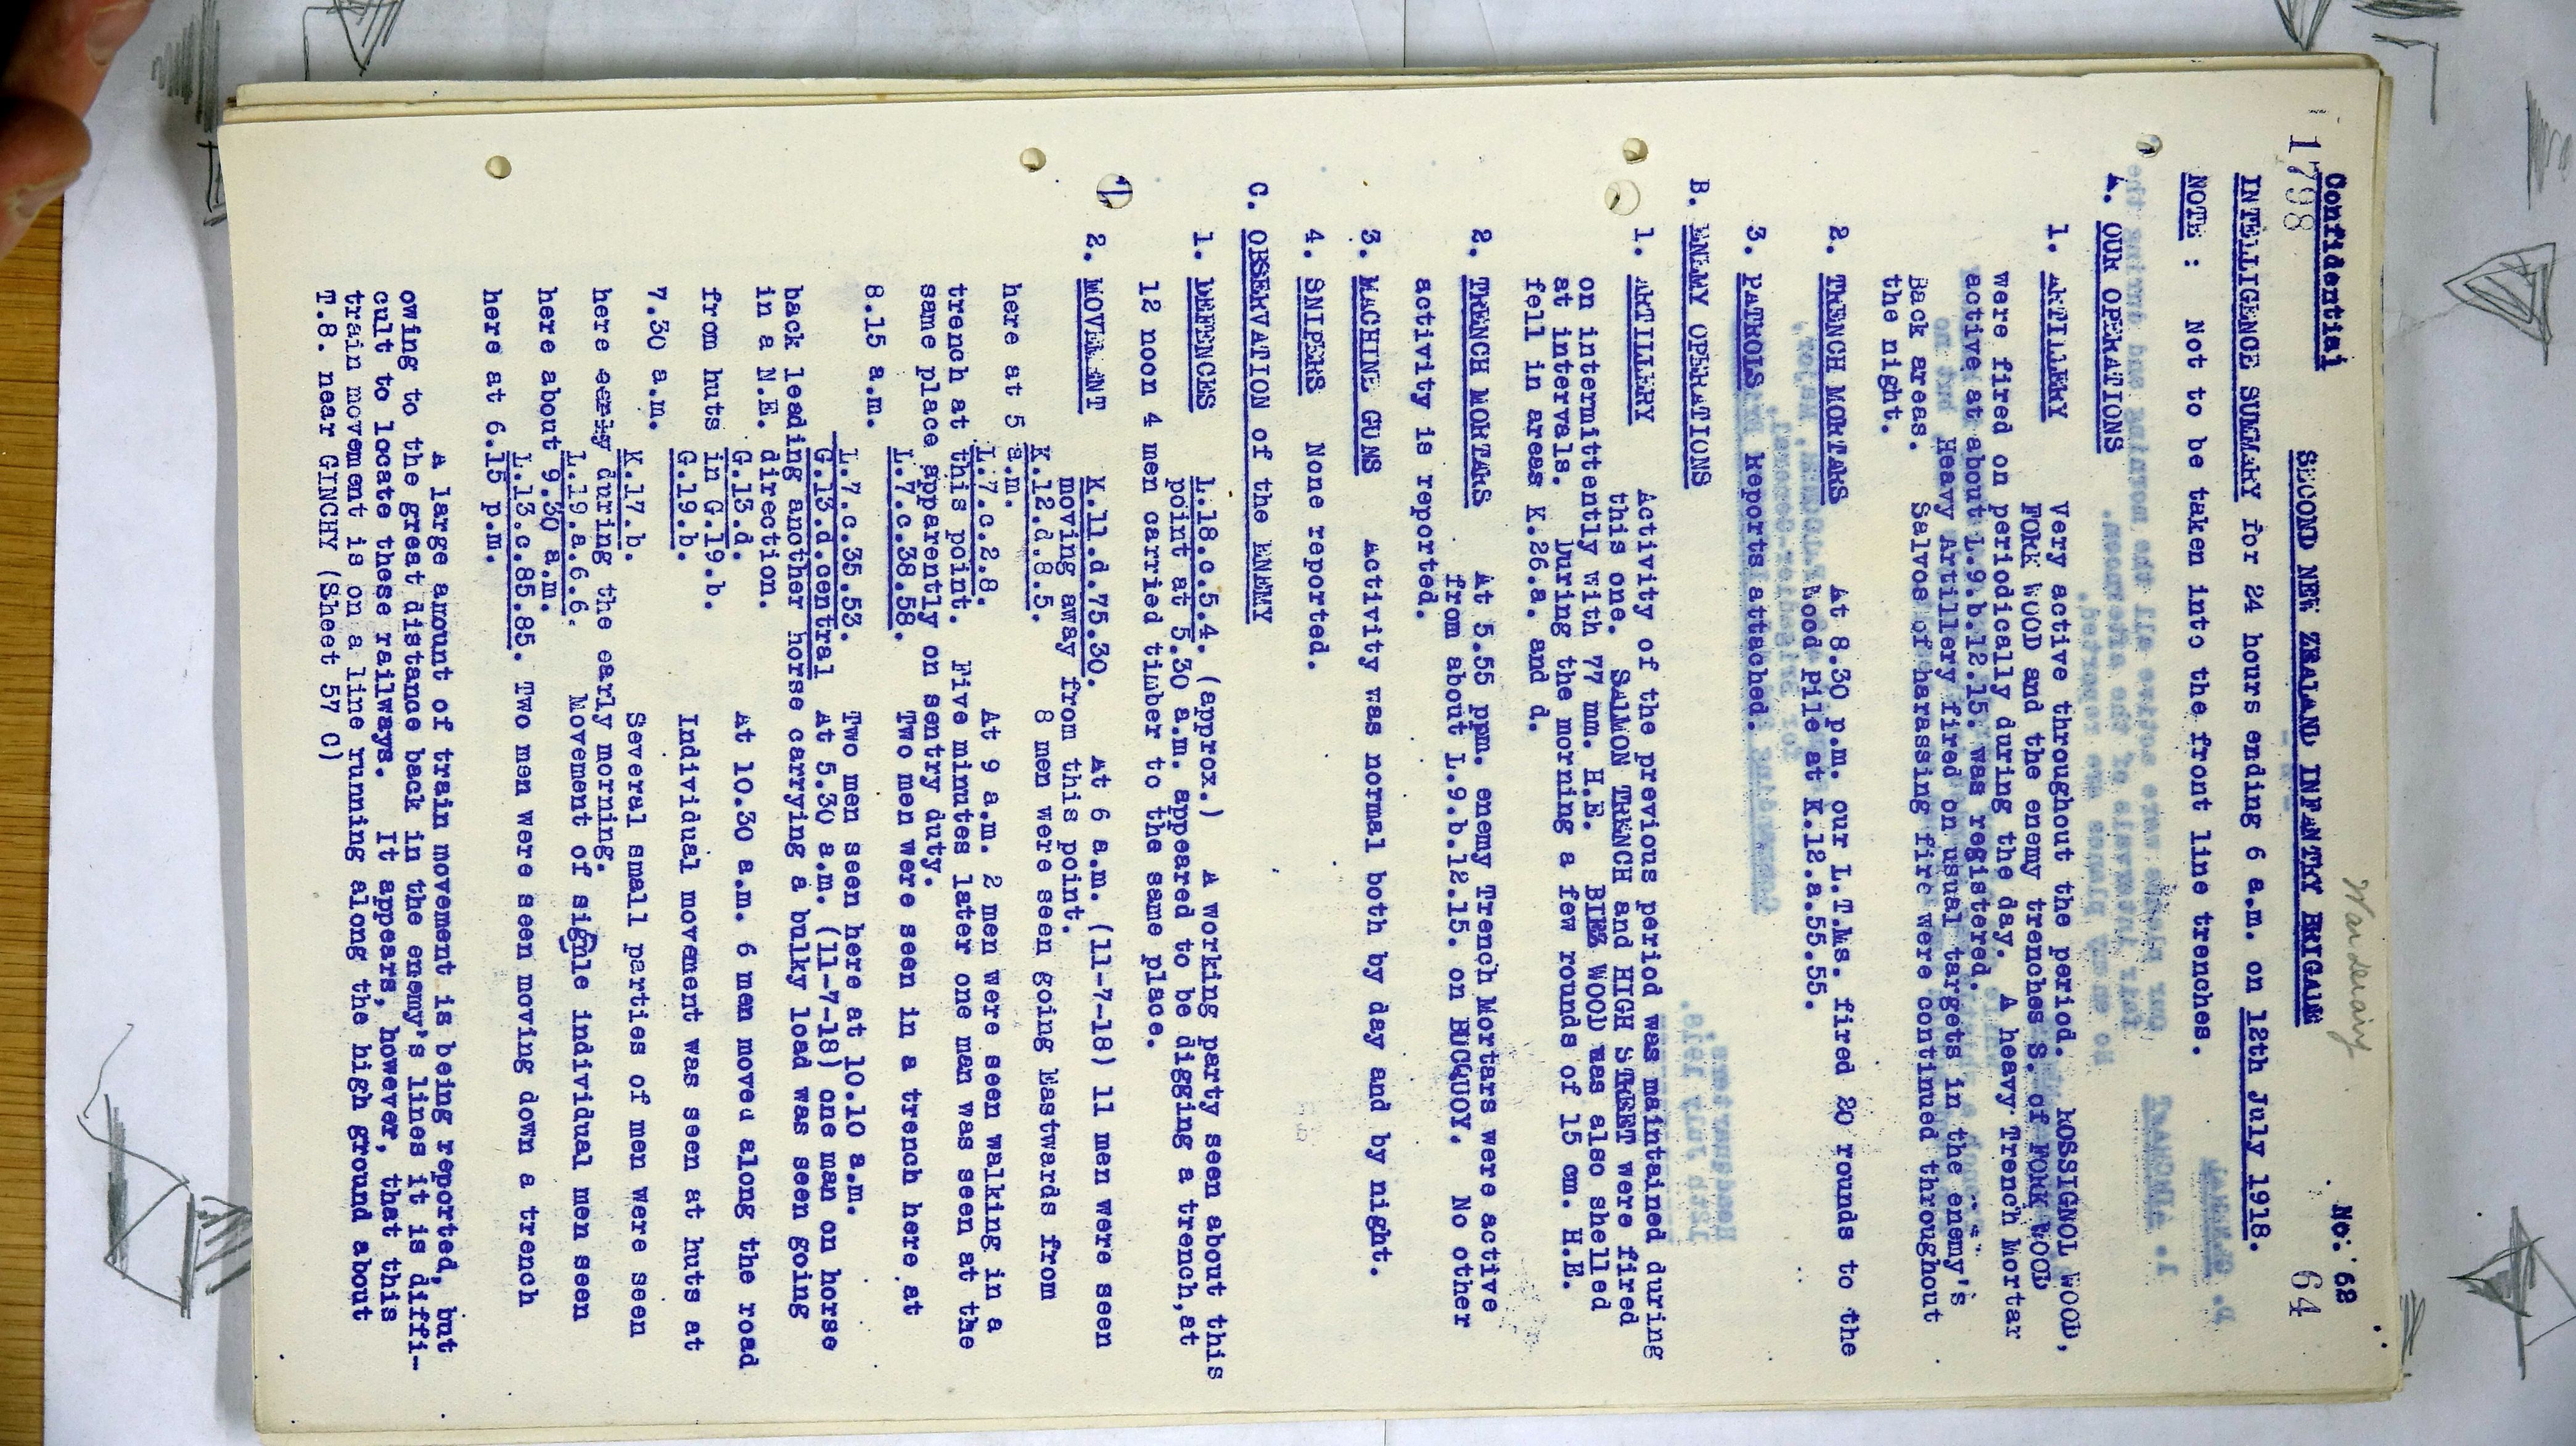 Confidential
War Diary
No: 62
1798
SECOND NEW ZEALAND INFANTRY BRIGADE
64
INTELLIGENCE SUMMARY for 24 hours ending 6 a.m. on 12th July 1918.
NOTE : Not to be taken into the front line trenches.
A. OUR OPERATIONS
1. ARTILLERY Very active throughout the period. ROSSIGNOL WOOD,
FORK WOOD and the enemy trenches S. of FORK WOOD
were fired on periodically during the day. A heavy Trench Mortar
active at about L.9.b.12.15. was registered.
Heavy Artillery fired on usual targets in the enemy's
Back areas. Salvos of harassing fire were continued throughout
the night.
2. TRENCH MORTARS At 8.30 p.m. our L.T.Ms. fired 20 rounds to the
Wood Pile at K.12.a.55.55.
3. PATROLS Reports attached.
B. ENEMY OPERATIONS
1. ARTILLERY Activity of the previous period was maintained during
this one. SALMON TRENCH and HIGH STREET were fired
on intermittently with 77 mm. H.E. BIEZ WOOD was also shelled
at intervals. During the morning a few rounds of 15 cm. H.E.
fell in areas K.26.a. and d.
2. TRENCH MORTARS At 5.55 ppm. enemy Trench Mortars were active
from about L.9.b.12.15. on BUCQUOY. No other
activity is reported.
3. MACHINE GUNS Activity was normal both by day and by night.
4. SNIPERS None reported.
C. OBSERVATION of the ENEMY
1. DEFENCES L.18.c.5.4. (approx.) A working party seen about this
point at 5.30 a.m. appeared to be digging a trench,at
12 noon 4 men carried timber to the same place.
2. MOVEMENT K.11.d.75.30. At 6 a.m. (11-7-18) 11 men were seen
moving away from this point.
K.12.d.8.5. 8 men were seen going Eastwards from
here at 5 a.m.
L.7.c.2.8. At 9 a.m. 2 men were seen walking in a
trench at this point. Five minutes later one man was seen at the
same place apparently on sentry duty.
L.7.c.38.58. Two men were seen in a trench here at
8.15 a.m.
L.7.c.35.53. Two men seen here at 10.10 a.m.
G.13.d.central At 5.30 a.m. (11-7-18) one man on horse
back leading another horse carrying a bulky load was seen going
in a N.E. direction.
G.13.d. At 10.30 a.m. 6 men moved along the road
from huts in G.19.b.
G.19.b. Individual movement was seen at huts at
7.30 a.m.
K.17.b. Several small parties of men were seen
here early during the early morning.
L.19.a.6.6. Movement of signle individual men seen
here about 9.30 a.m.
L.13.c.85.85. Two men were seen moving down a trench
here at 6.15 p.m.
A large amount of train movement is being reported, but
owing to the great distance back in the enemy's lines it is diffi-
cult to locate these railways. It appears, however, that this
train movement is on a line running along the high ground about
T.8. near GINCHY (Sheet 57 C)